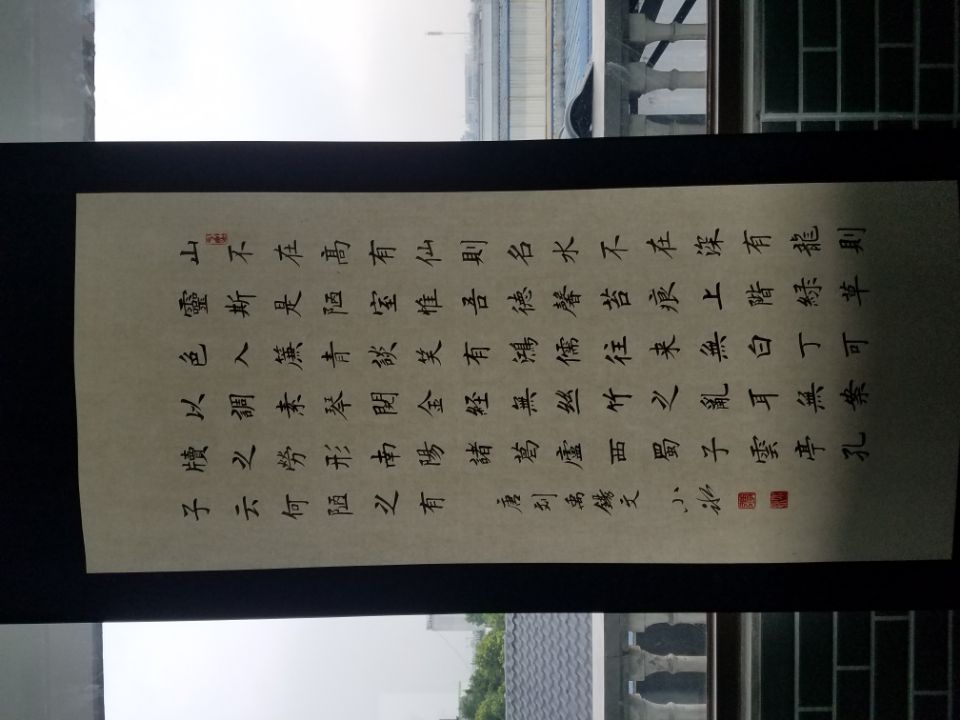 山不在高有仙則名水不在深有龍則
靈斯是陋室惟吾徳馨苔痕上階緑草
色入簾青談笑有鴻儒往来無白丁可
以調素琴閱金経無絲竹之亂耳無案
牘之勞形南陽諸葛廬西蜀子雲亭孔
子云何陋之有
唐劉禹錫文